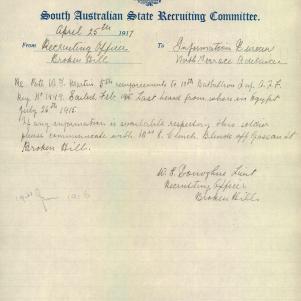 South Australian State Recruiting Committee.
April 25th 1917
From Recruiting Officer To Information Bureau
Broken Hill North Terrace Adelaide
Re. Pte W. J. Martin 5th reinforcements to 10th Battalion Inf. A.I.F.
Reg. No Sailed Feb. 1915 Last heard from where in Egypt
July 26th 1915.
If any information is available respecting this soldier
please communicate with Mrs E. Clinch. Blende off
Broken Hill.
W. E. Donoghue Lieut
Recruiting Officer
Broken Hill